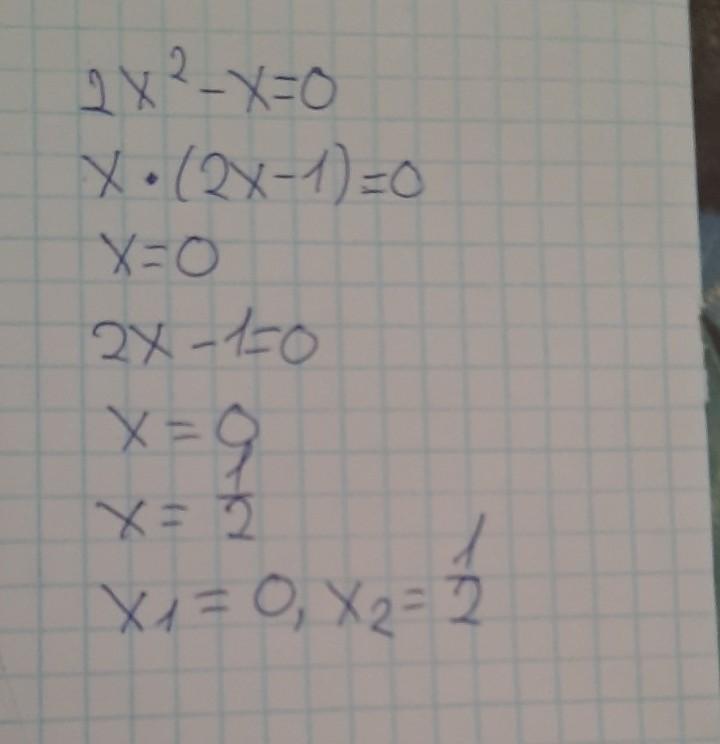 2x² - x = 0
x · (2x - 1) = 0
x = 0
2x - 1 = 0
x = 0
x = 1/2
x₁ = 0, x₂ = 1/2